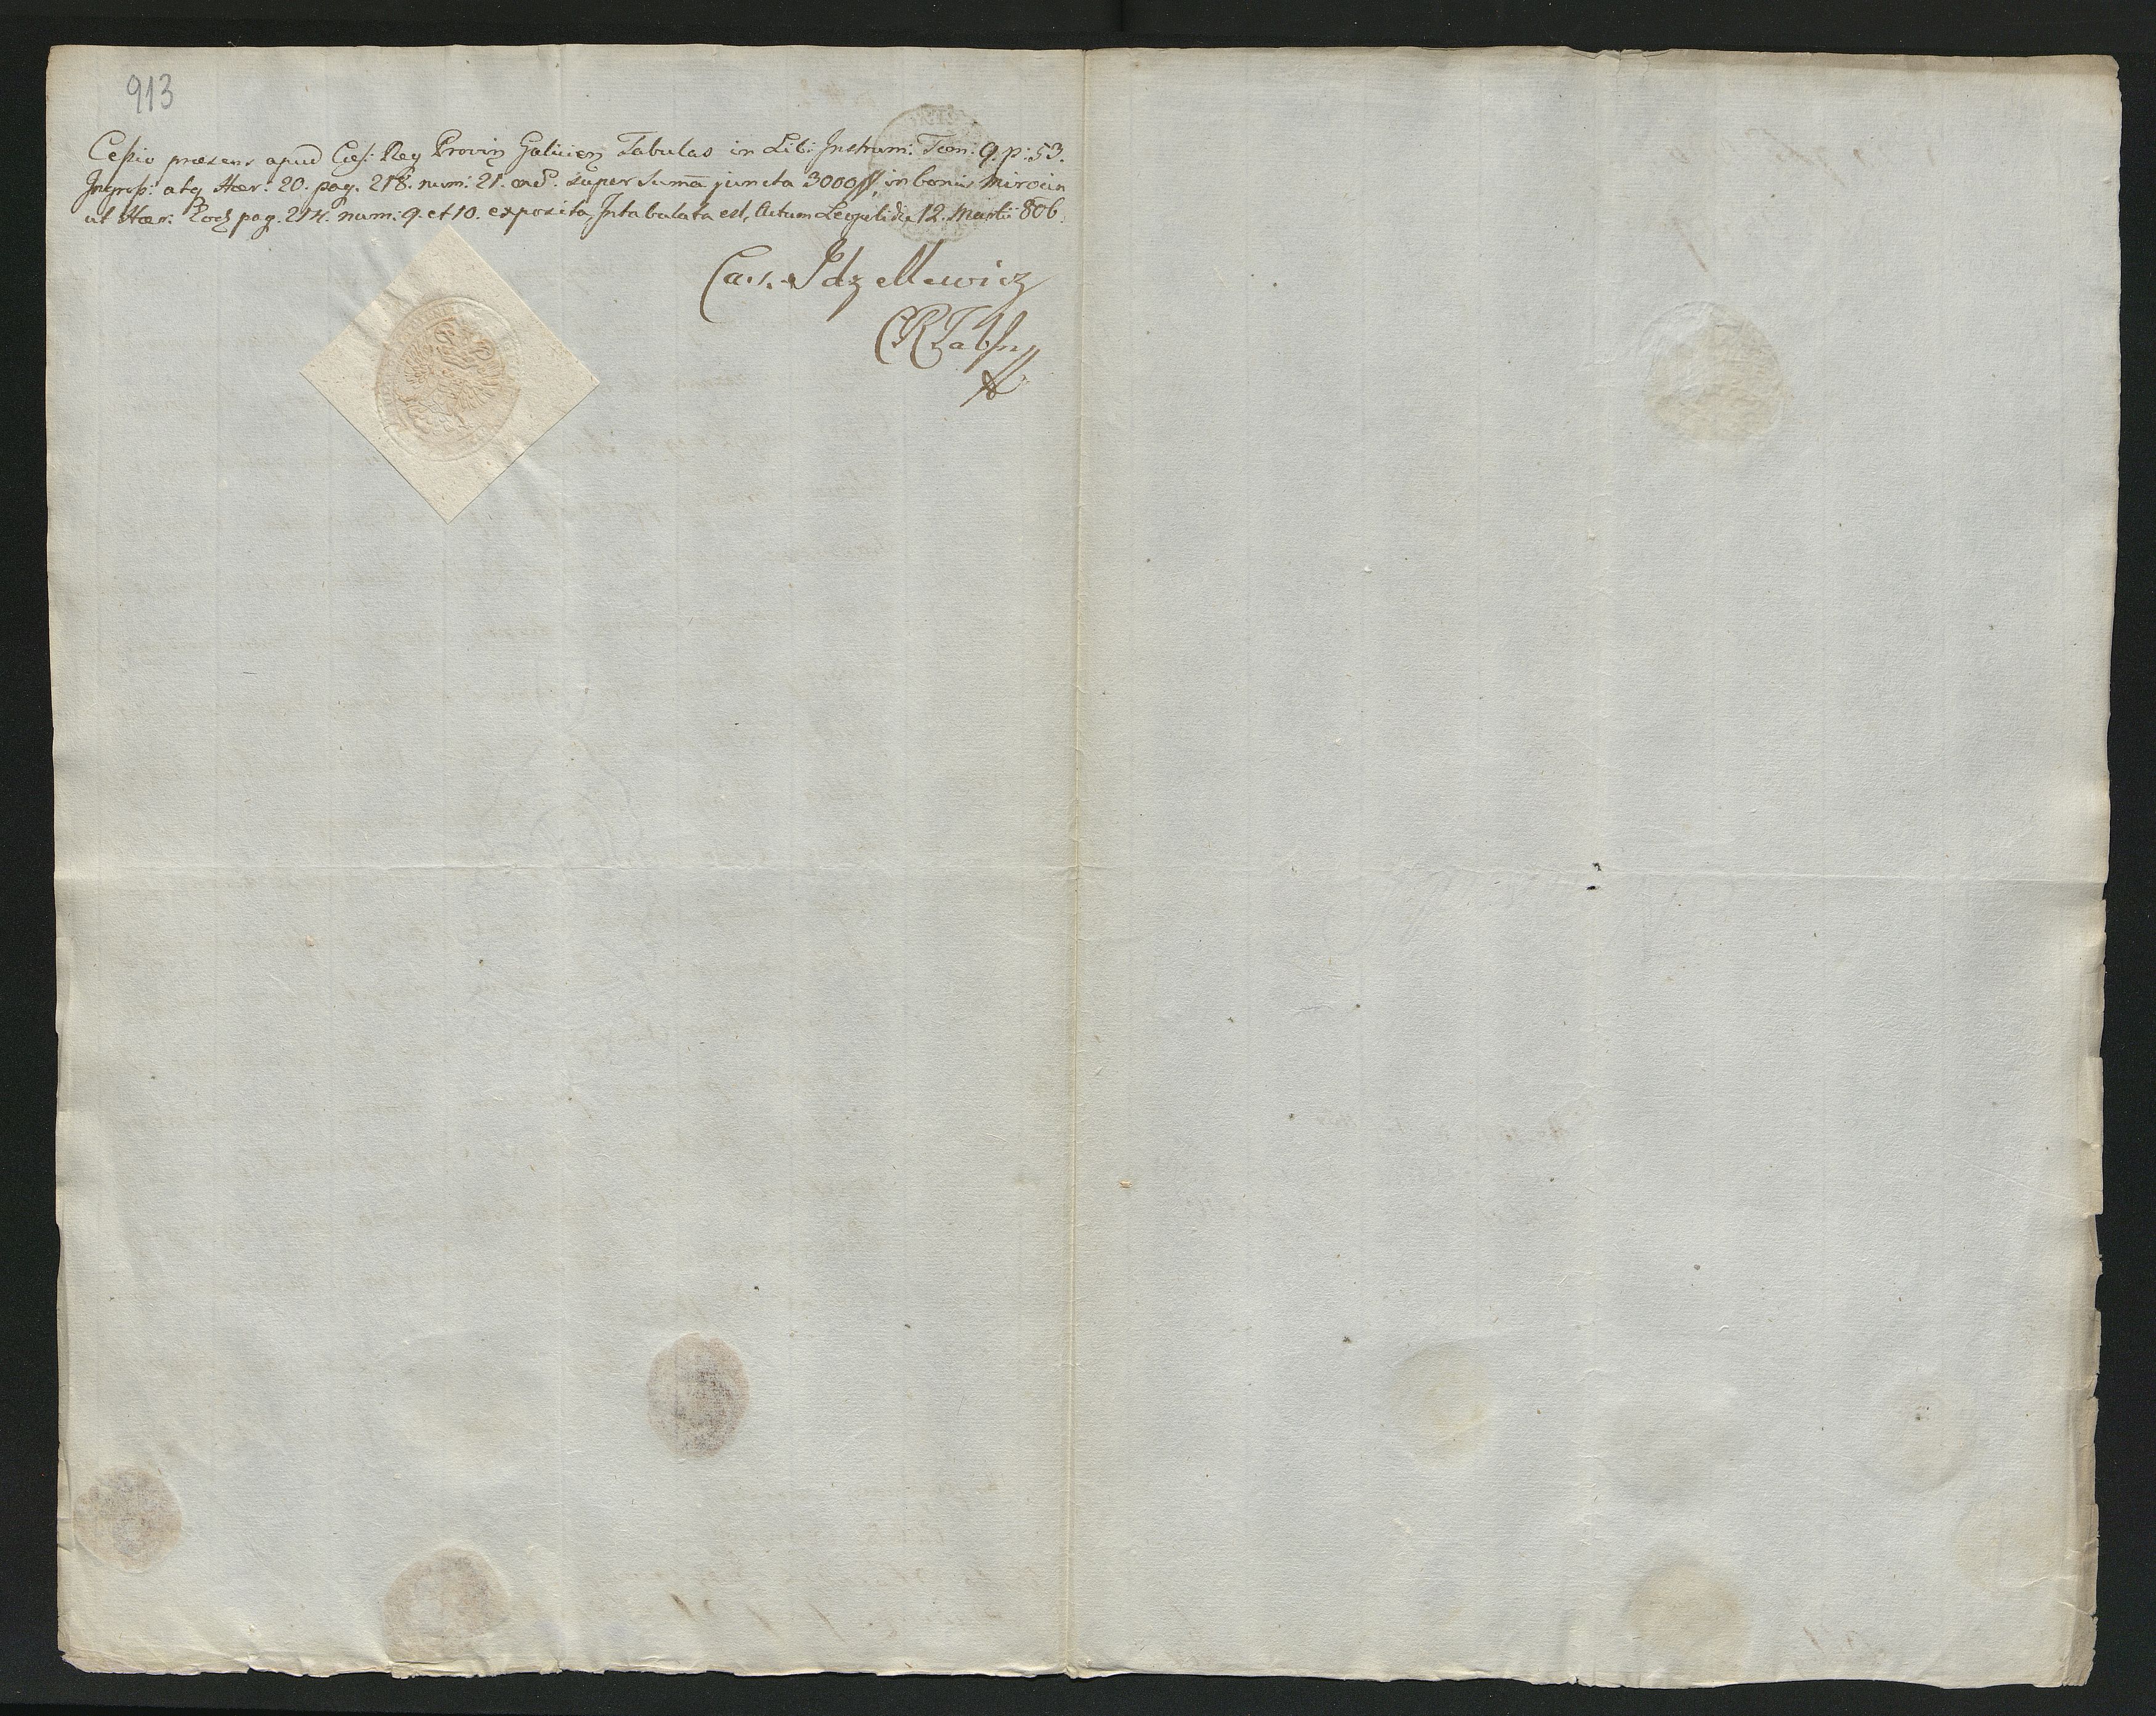 913
Cessio praesens apud Caes: Reg Provin Galicien Tabulas in Lib: Instrum: Tom: 9. p: 53.
Ingross: atq Haer: 20. pag. 218. num: 21. on. super Suma juncta 3000 in bonis Mirocin
ut Haer: pag. 214. num: 9. et 10. exposita, Intabulata est, Actum Leopoli die 12. Martii 806.
Cas. Idzellewicz
CRTab